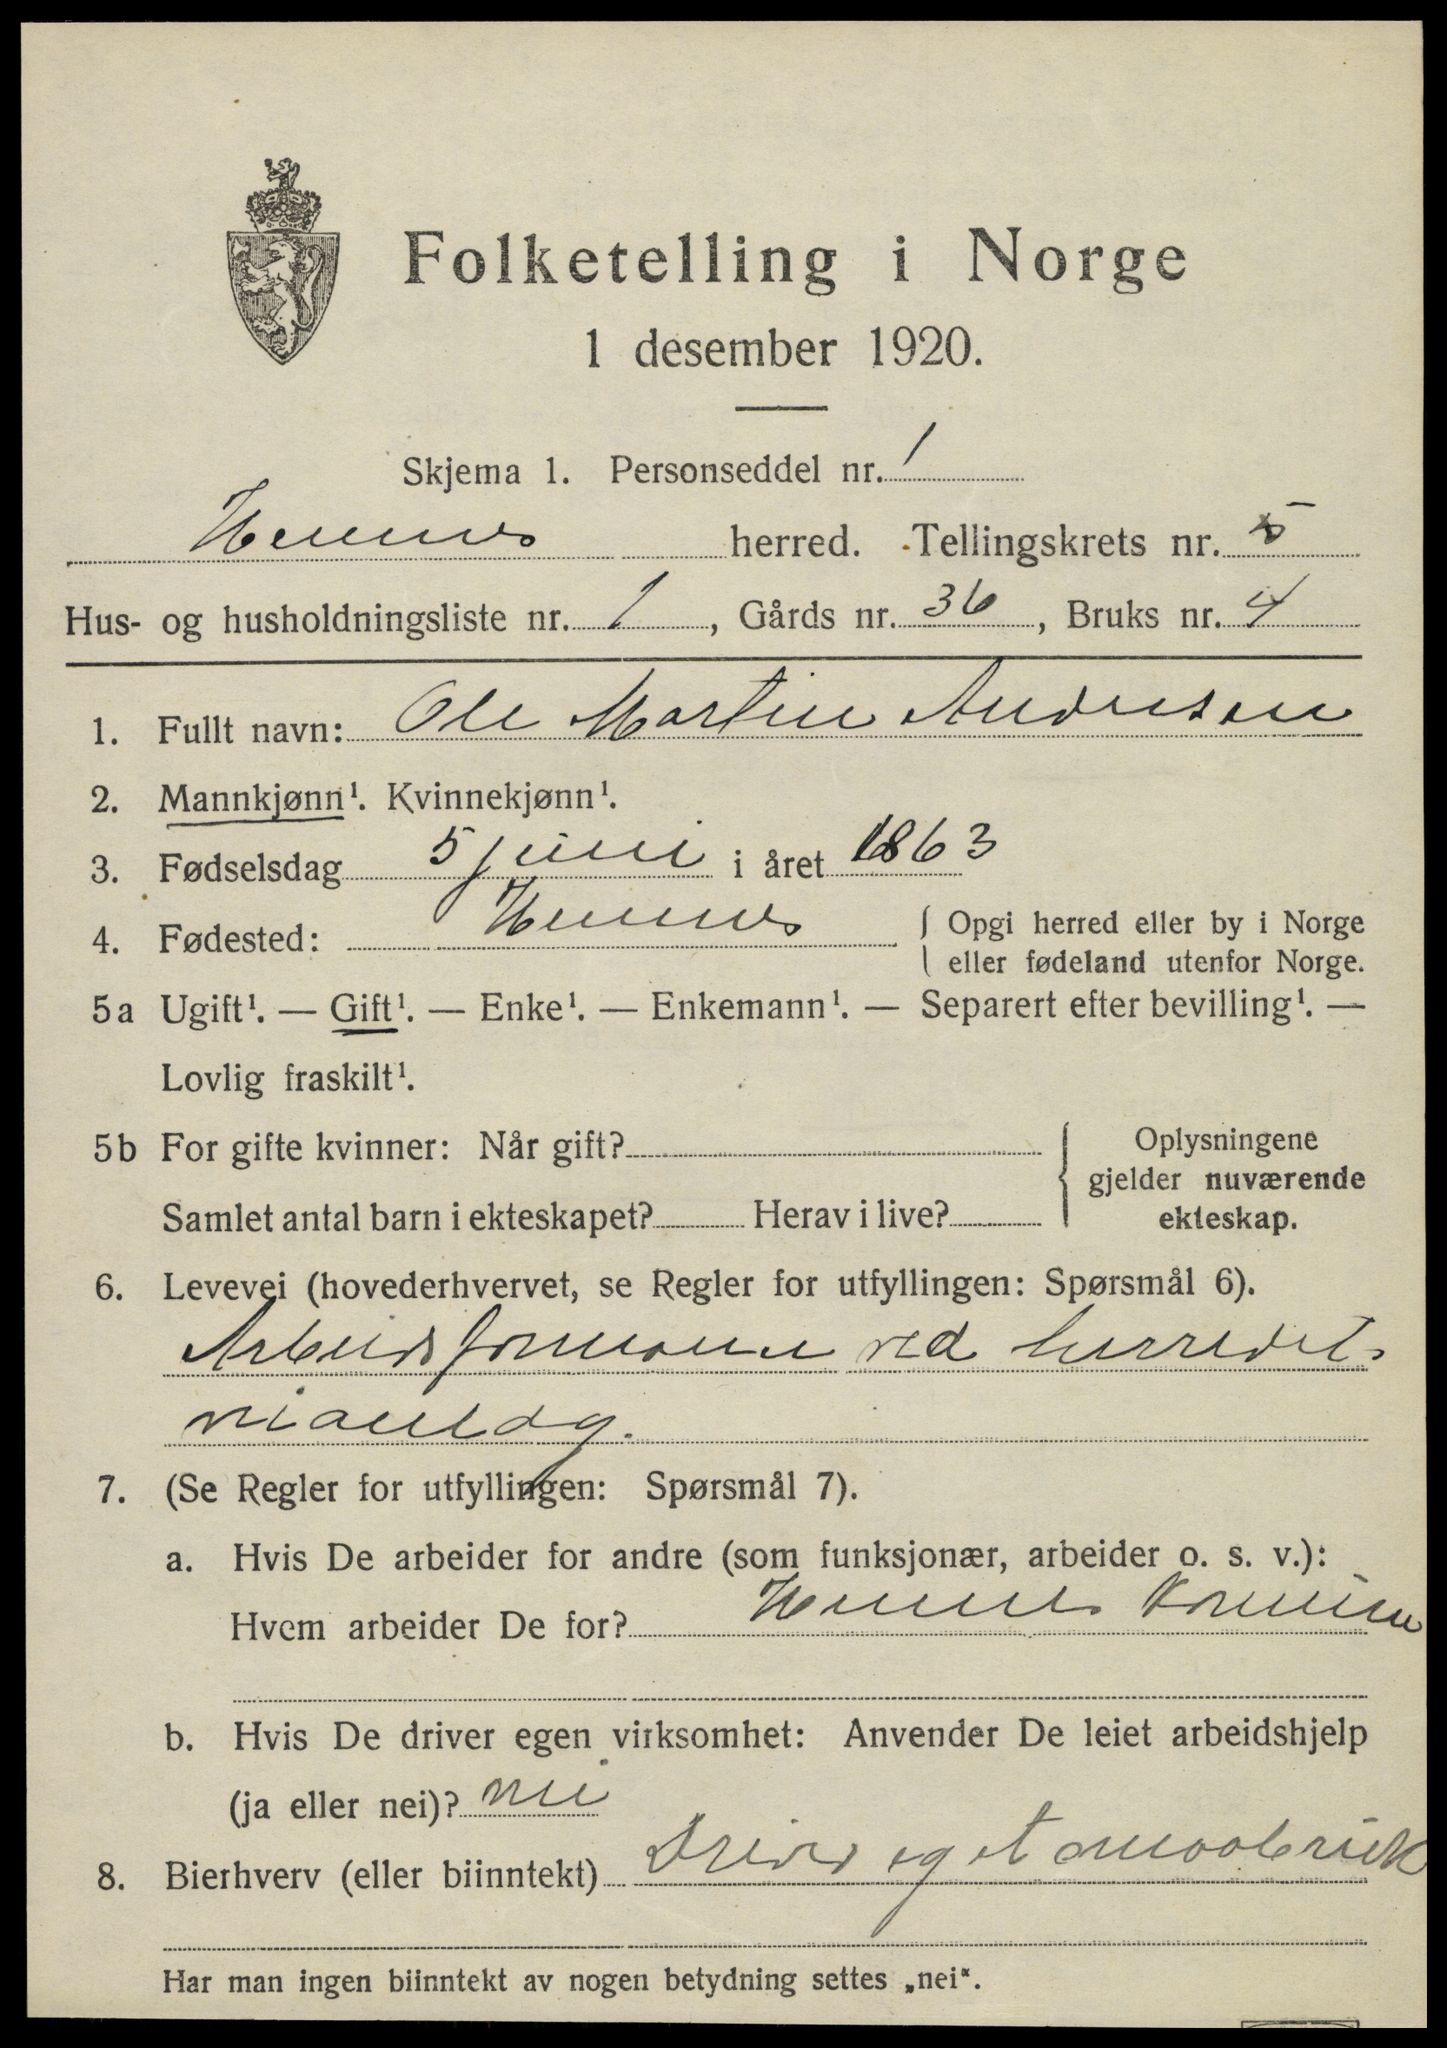 Folketelling i Norge
1 desember 1920.
Skjema 1. Personseddel nr. 1
Hemnes herred. Tellingskrets nr. 5
Hus- og husholdningsliste nr. 1, Gårds nr. 36, Bruks nr. 4
1. Fullt navn: Ole Martin Andersen
2. Mannkjønn¹. Kvinnekjønn¹.
3. Fødselsdag 5 juni i året 1863
4. Fødested: Hemnes { Opgi herred eller by i Norge
eller fødeland utenfor Norge.
5a Ugift¹. — Gift¹. — Enke¹. — Enkemann¹. — Separert efter bevilling¹. —
Lovlig fraskilt¹.
5b For gifte kvinner: Når gift? { Oplysningene
gjelder nuværende
Samlet antal barn i ekteskapet? Herav i live? ekteskap.
6. Levevei (hovederhvervet, se Regler for utfyllingen: Spørsmål 6).
Arbeidsformann ved herredet
7. (Se Regler for utfyllingen: Spørsmål 7).
a. Hvis De arbeider for andre (som funksjonær, arbeider o. s. v.):
Hvem arbeider De for? Hemnes
b. Hvis De driver egen virksomhet: Anvender De leiet arbeidshjelp
(ja eller nei)? nei
8. Bierhverv (eller biinntekt) Driver eget smaabruk
Har man ingen biinntekt av nogen betydning settes „nei“.